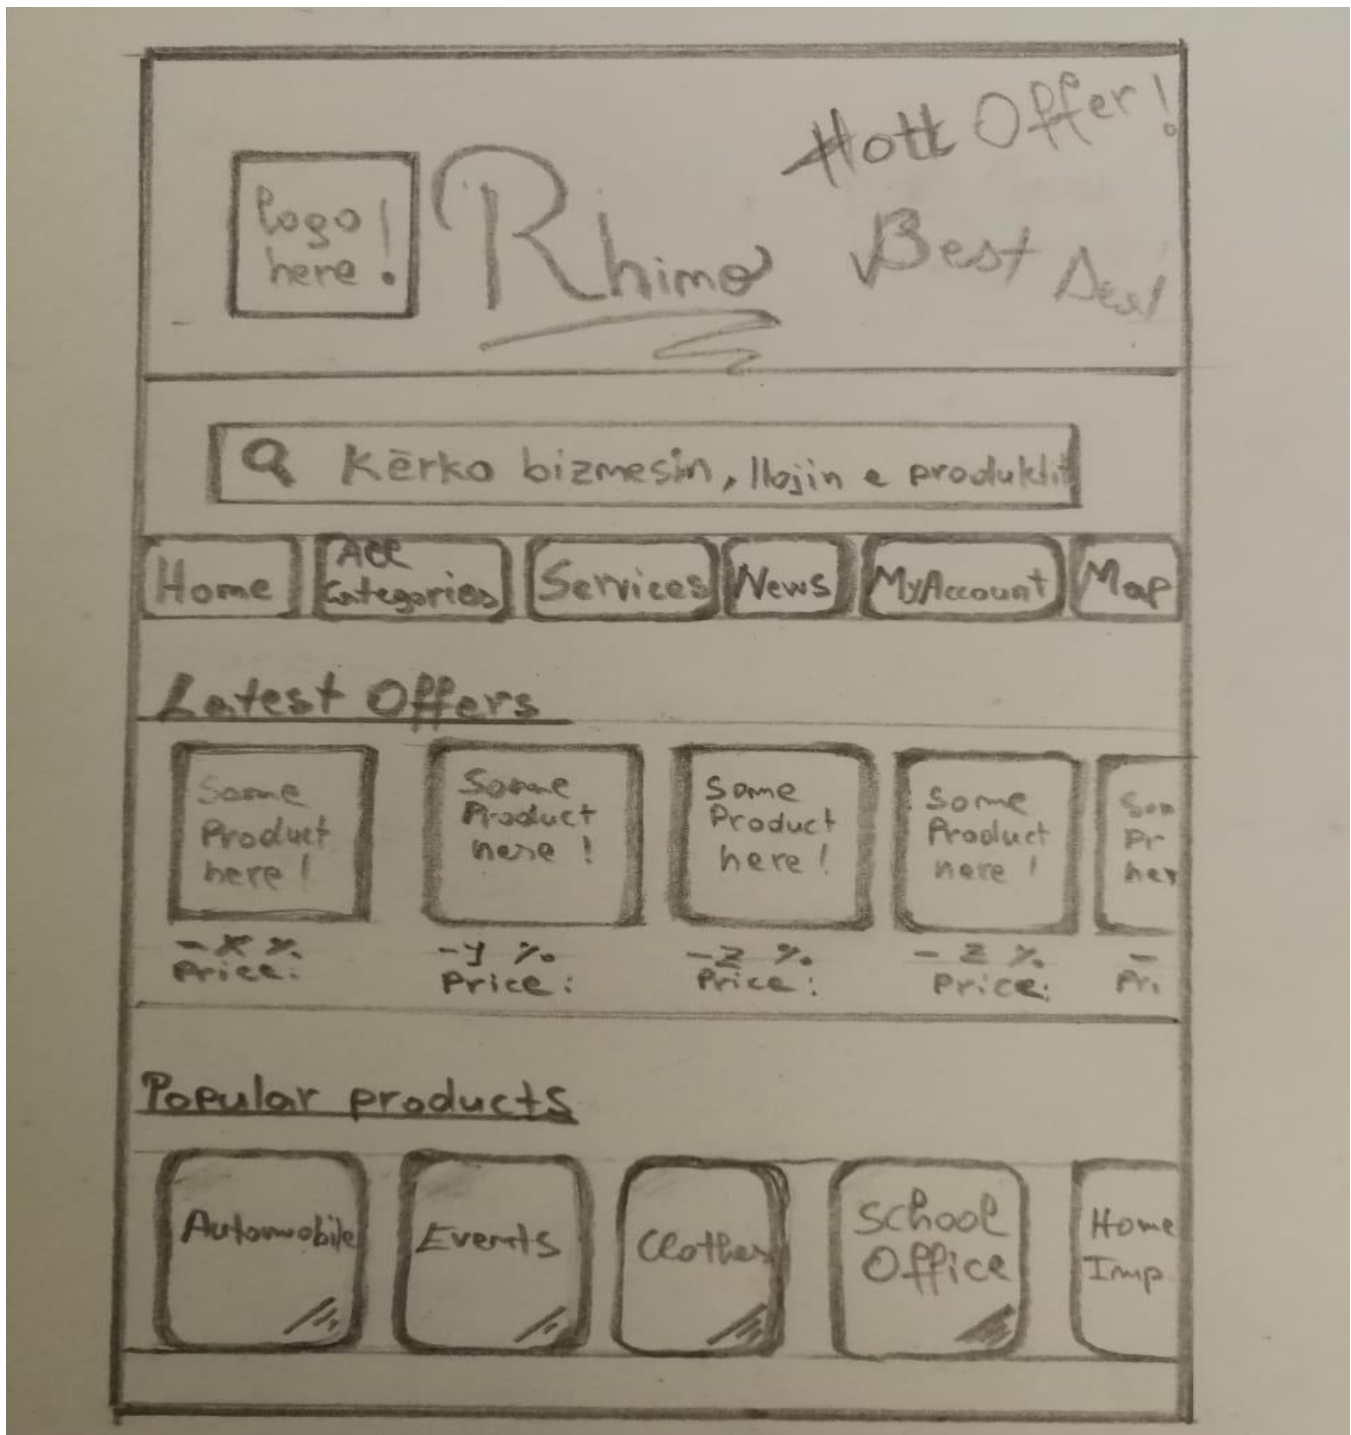 Hott Offer!
logo
here!
Rhimo
Best Deal
Kërko bizmesin, llojin e produktit
Home
All
Categories
Services
News
MyAccount
Map
Latest Offers
Some
Product
here!
Some
Product
here!
Some
Product
here!
Some
Product
here!
Som
Pr
her
- X %
Price:
- y %
Price:
- Z %
Price:
- Z %
Price:
-
Pri
Popular products
Automobile
Events
Clothes
School
Office
Home
Imp